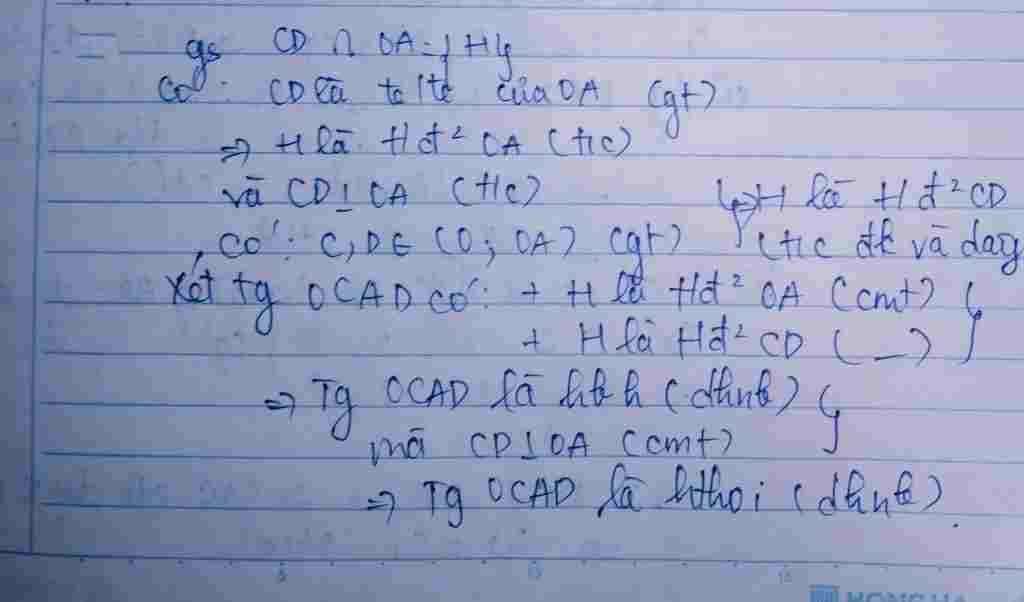 gs CD ∩ OA = {H}
Có: CD là tc/tđ của OA (gt)
⇒ H là tđ² OA (t/c)
và CD ⊥ OA (t/c)
⇒ H là tđ² CD
Có: C, D ∈ (O; OA) (gt)
(t/c đk và dây
Xét tg OCAD có: + H là tđ² OA (cmt)
+ H là tđ² CD ( _ )
⇒ Tg OCAD là hbh (dhnb)
mà CD ⊥ OA (cmt)
⇒ Tg OCAD là hthoi (dhnb).
5 10 15
HONG HA